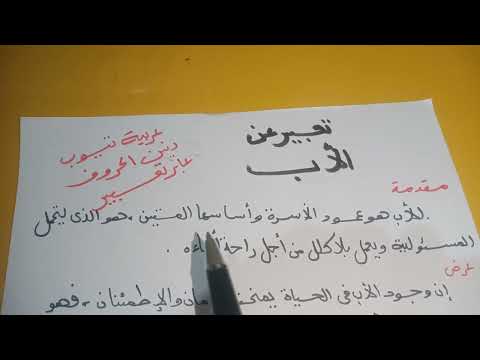 تعبير عن
الأب
عربية تيوب
دندن الحروف
عايز تعبير
مقدمة
الأب هو عمود الأسرة وأساسها المتين، هو الذى يتحمل
المسئولية ويعمل بلا كلل من أجل راحة أبناءه.
عرض
إن وجود الأب فى الحياة والإطمئنان، فهو